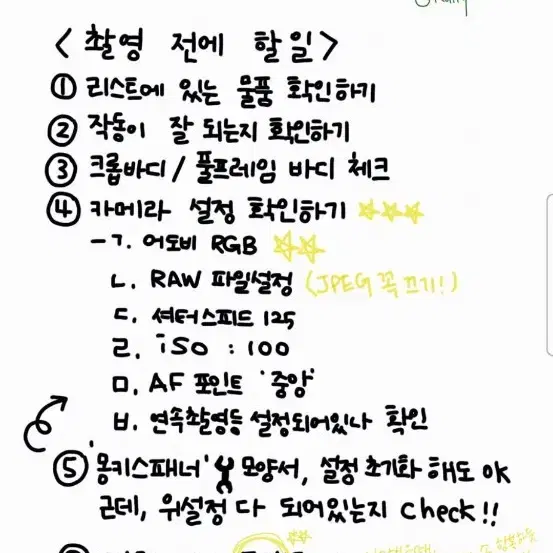 <촬영 전에 할일>
① 리스트에 있는 물품 확인하기
② 작동이 잘 되는지 확인하기
③ 크롭바디 / 풀프레임 바디 체크
④ 카메라 설정 확인하기 ☆☆☆
-ㄱ. 어도비 RGB ☆☆
ㄴ. RAW 파일설정 (JPEG 꼭 끄기!)
ㄷ. 셔터스피드 125
ㄹ. iSO : 100
ㅁ. AF 포인트 '중앙'
ㅂ. 연속촬영등 설정되어있나 확인
⑤ '몽키스패너' 모양서, 설정 초기화 해도 ok
근데, 위설정 다 되어있는지 check!!